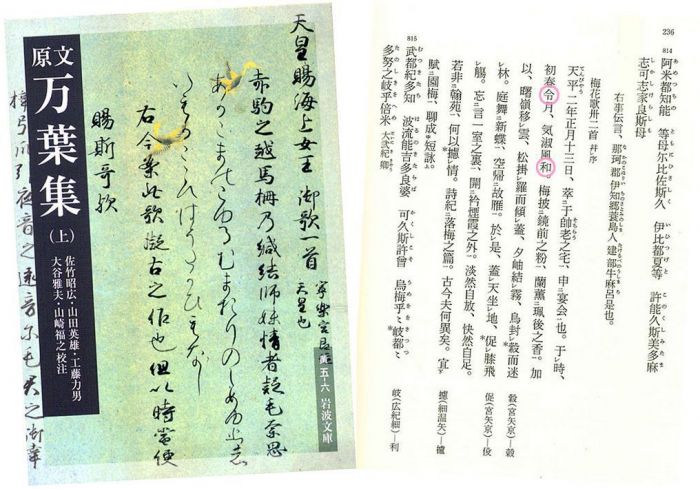 原文
万葉集
(上)
佐竹昭広・山田英雄・工藤力男
大谷雅夫・山崎福之校注
岩波文庫
天皇賜海上女王御歌一首
天皇也
赤駒之越馬柵乃緘結師妹情者疑毛奈思
右今案此歌擬古之作也 但以時當便
賜斯哥歟
梓弓爪引夜音之遠音尓毛君之御幸
236
814
阿米都知能 等母尓比佐斯久 伊比都夏等 許能久斯美多麻
志可志家良斯母
右事伝言、那珂郡伊知郷蓑島人建部牛麻呂是也。
梅花歌卅二首 并序
天平二年正月十三日、萃于帥老之宅、申宴会也。于時、
初春令月、気淑風和。梅披鏡前之粉、蘭薫珮後之香。加
以、曙嶺移雲、松掛羅而傾蓋、夕岫結霧、鳥封縠而迷
林。庭舞新蝶、空帰故雁。於是、蓋天坐地、促膝飛
觴。忘言一室之裏、開衿煙霞之外。淡然自放、快然自足。
若非翰苑、何以攄情。詩紀落梅之篇。古今夫何異矣。宜
賦園梅、聊成短詠。
815
武都紀多知 波流能吉多良婆 可久斯許曽 烏梅乎〻岐都〻
多努之岐乎倍米 大弐紀卿
縠(宮矢京)―穀
促(宮矢京)―
攄(細温矢)―
岐(広紀細)―利